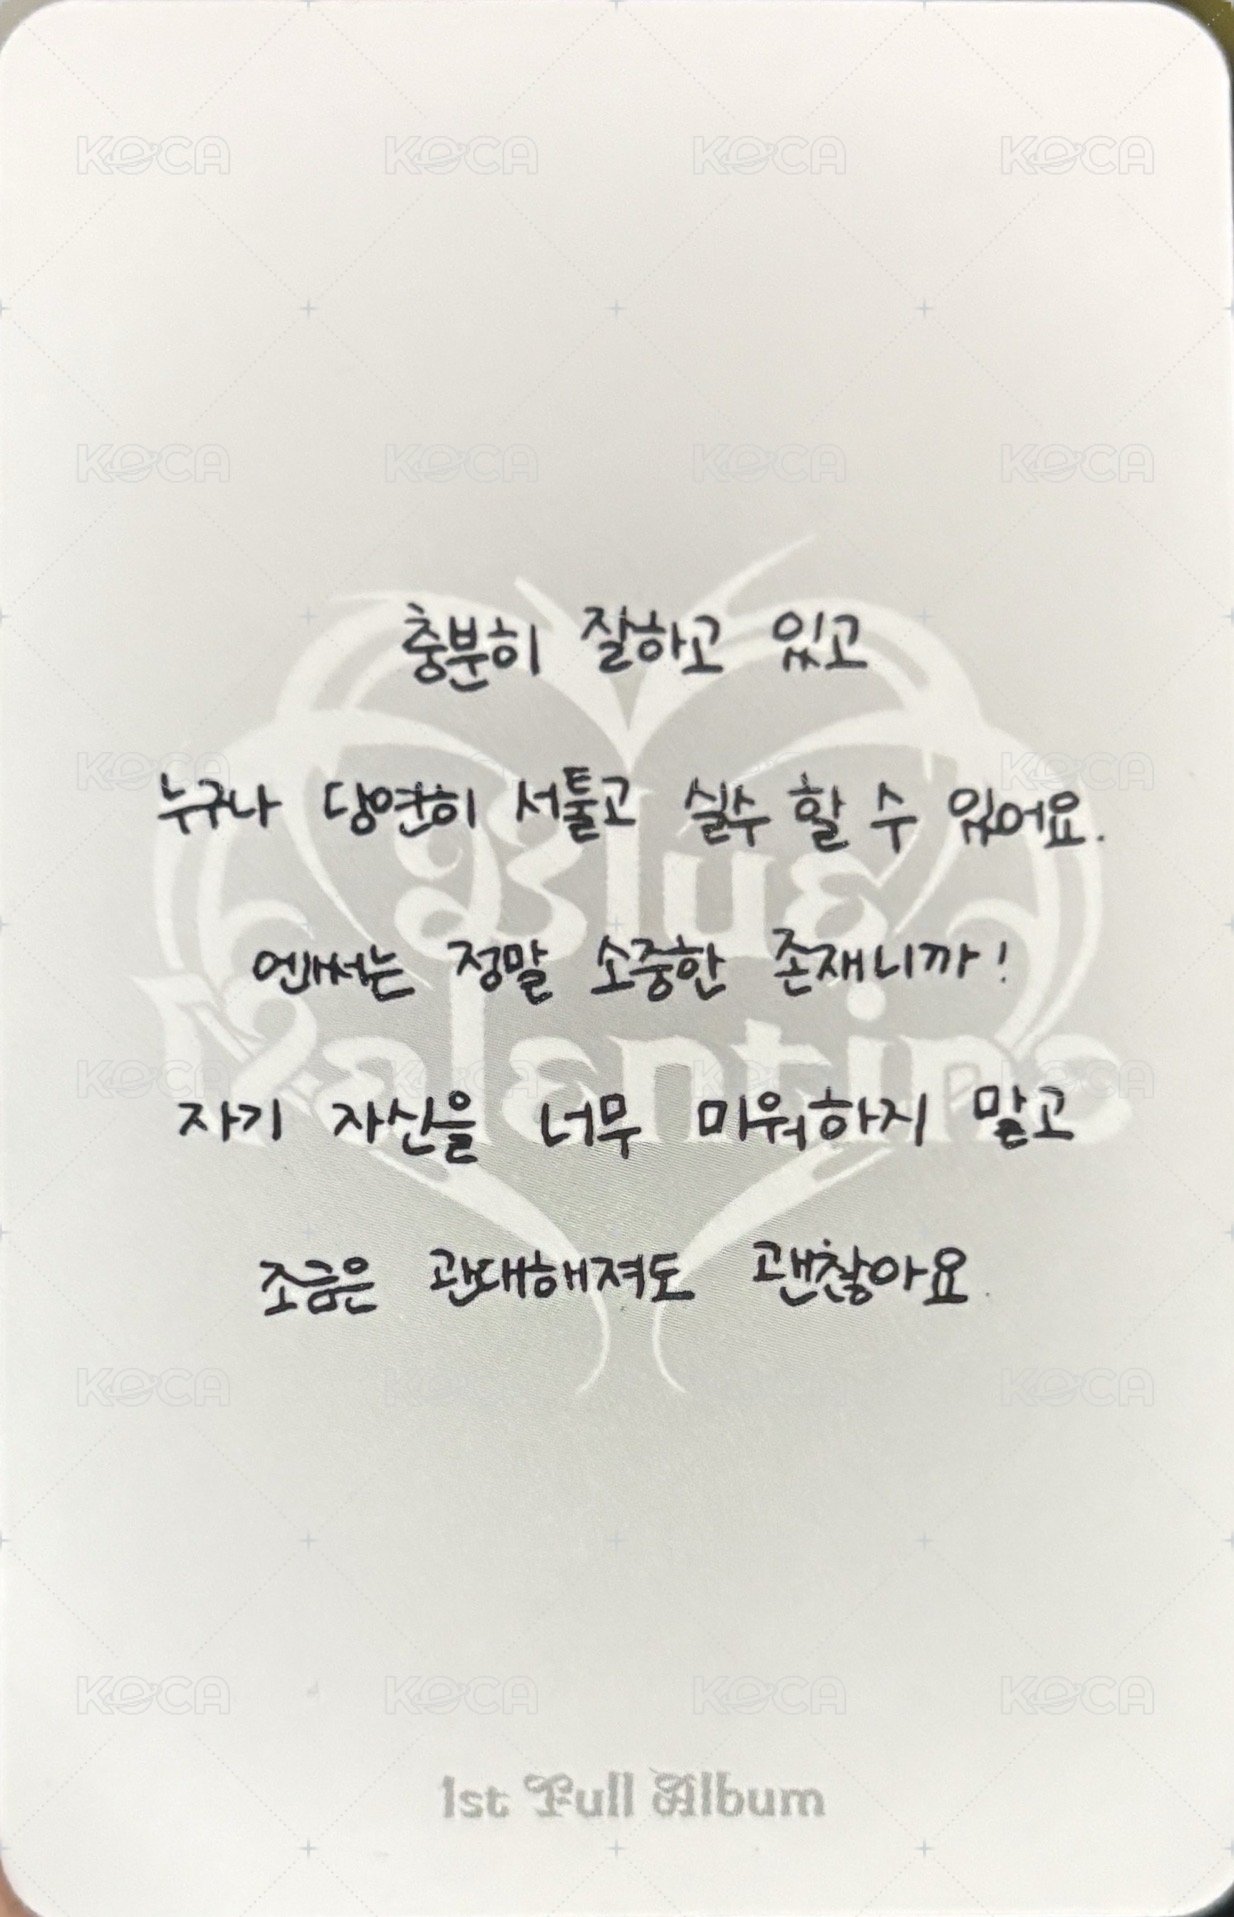 KOCA KOCA KOCA KOCA
KOCA KOCA KOCA KOCA
충분히 잘하고 있고
KOCA KOCA
누구나 당연히 서툴고 실수 할 수 있어요.
Blue
엔써는 정말 소중한 존재니까!
Valentine
자기 자신을 너무 미워하지 말고
조금은 관대해져도 괜찮아요.
KOCA KOCA KOCA KOCA
KOCA KOCA KOCA KOCA
1st Full Album